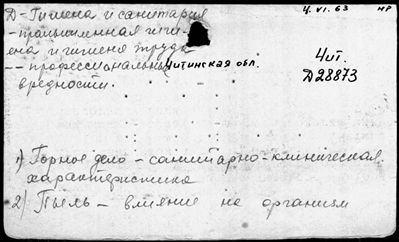 Д-Гигиена и санитария
4.VI.63
НР
-промышленная гиги-
ена и гигиена труда
-- профессиональные
Читинская обл.
Чит.
Д28873
вредности.
1) Горное дело - санитарно-клиническая
характеристика
2) Пыль - влияние на организм